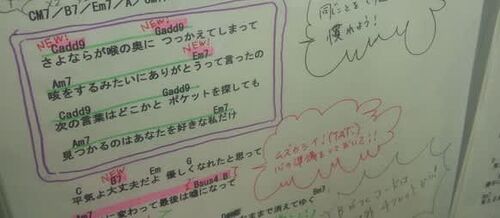 CM7/B7/Em7/A/
同じことを
慣れよう!
NEW! NEW!
Cadd9 Gadd9
さよならが喉の奥に つっかえてしまって
NEW!
Am7 Em7
咳をするみたいにありがとうって言ったの
Cadd9 Gadd9
次の言葉はどこかと ポケットを探しても
Am7 Em7
見つかるのはあなたを好きな私だけ
NEW
C G7 Em G
平気よ大丈夫だよ 優しくなれたと思って
Bsus4 B
Am7 に変わって最後は嘘になって
ムズカシイ!(TAT)
心の準備をしておいて!!
Bm7
ままで消えてゆく